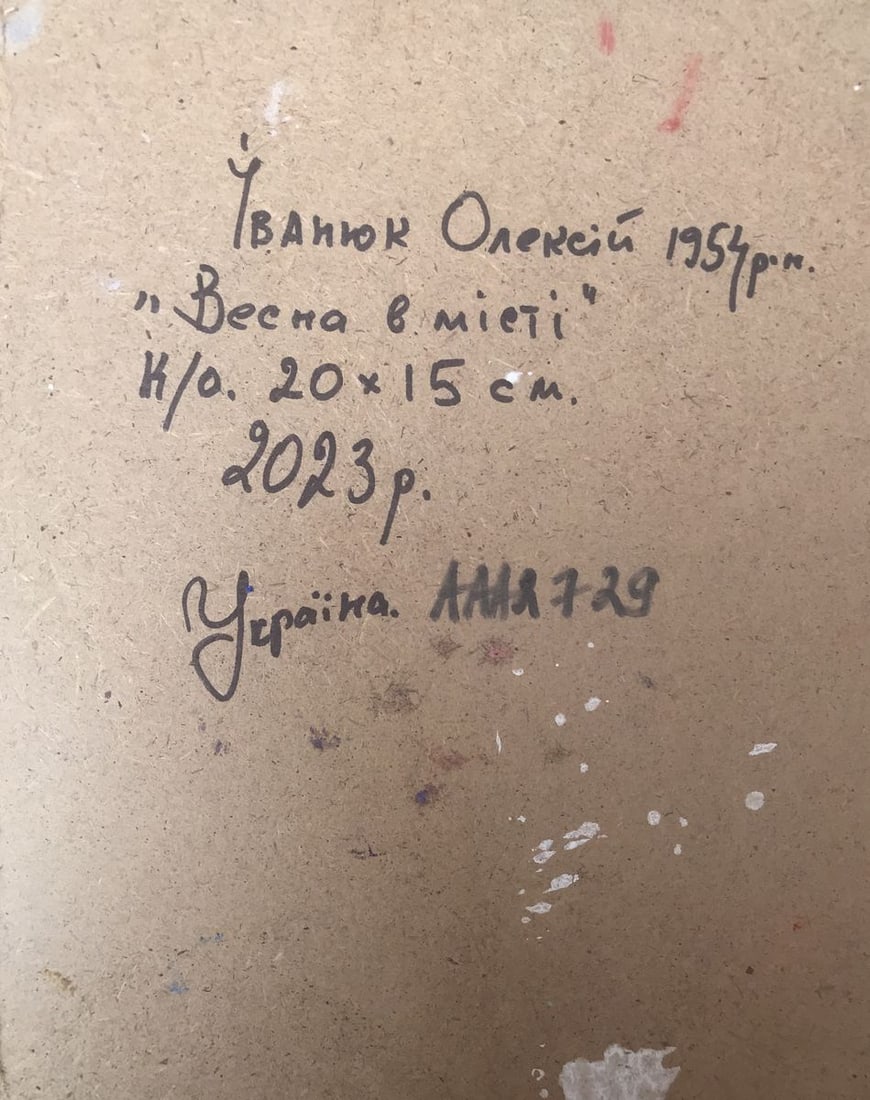 Іванюк Олексій 1954 р.н.
„Весна в місті"
К/о. 20×15 см.
2023 р.
Україна.